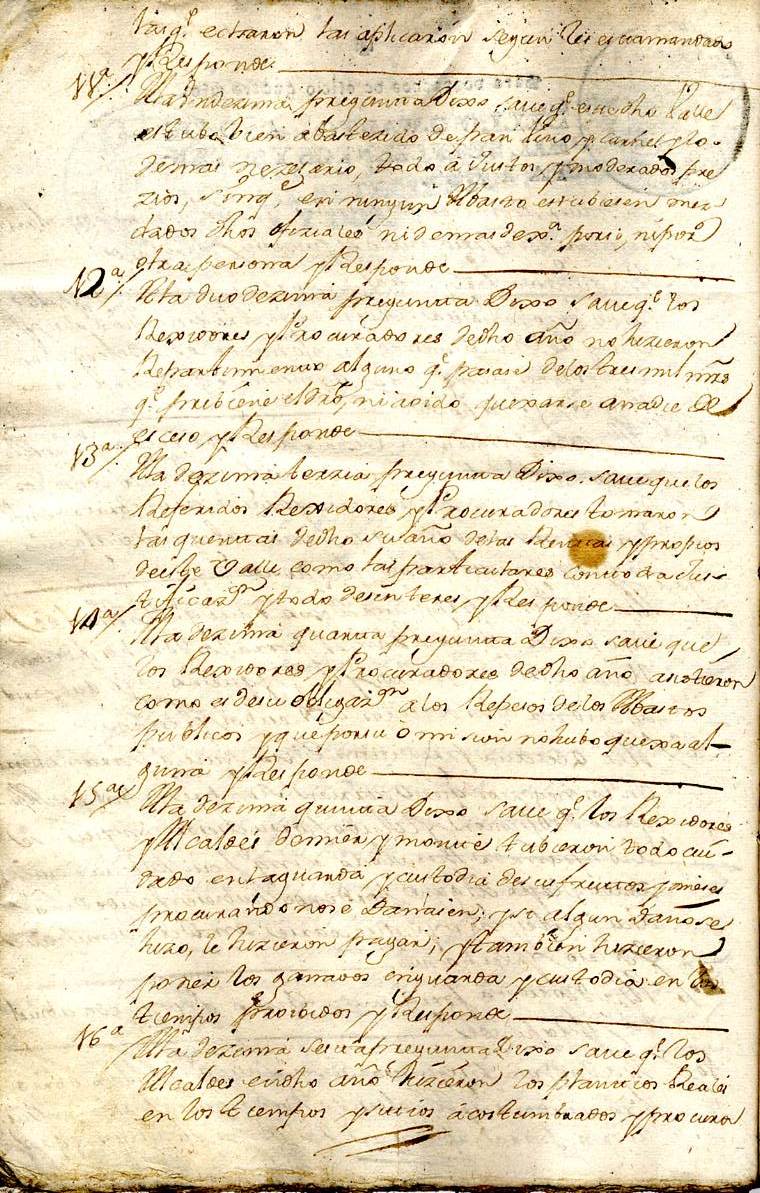 las q.e echaron las aplicaron segun les es mandado
y Responde
11.a/ A la undezima pregunta Dixo save q.e este dho Valle
estubo bien abastezido de pan vino y carnes y lo
demas nezesario, todo a Justos y moderados pre
zios, sin q.e en ningun Abasto estubiesen
dhos ofiziales ni demas por si, ni por
otra persona y Responde
12.a/ A la duodezima pregunta Dixo save q.e los
Rexidores y Procuradores de dho año no hizieron
Repartimiento alguno q.e pasase de los tres mil mrs
q.e prebiene el dro, ni a oido quexarse a nadie de
exceso, y Responde
13.a/ A la dezima terzia pregunta Dixo save que los
Referidos Rexidores y Procuradores tomaron
las quentas de dho su año de las Rentas y propios
de este Valle como las particulares con toda Jus
tificaz.on y todo desinteres y Responde
14.a/ A la dezima quarta pregunta Dixo save que
los Rexidores y Procuradores de dho año asistieron
como es de su obligaz.on a los Repesos de los Abastos
publicos y que por su omision no hubo quexa al-
guna y Responde
15.a/ A la dezima quinta Dixo save q.e los Rexidores
y Alcaldes de mier y monte tubieron todo cui-
dado en la guarda y custodia de sus fructos y mieses
procurando no se Dañasen; y si algun daño se
hizo, le hizieron pagar; y tambien hizieron
poner los ganados en guarda y custodia en los
tiempos proibidos y Responde
16.a A la dezima sesta pregunta Dixo save q.e los
Alcaldes en dho año hizieron los plantios Reales
en los tiempos y sitios acostumbrados y procura